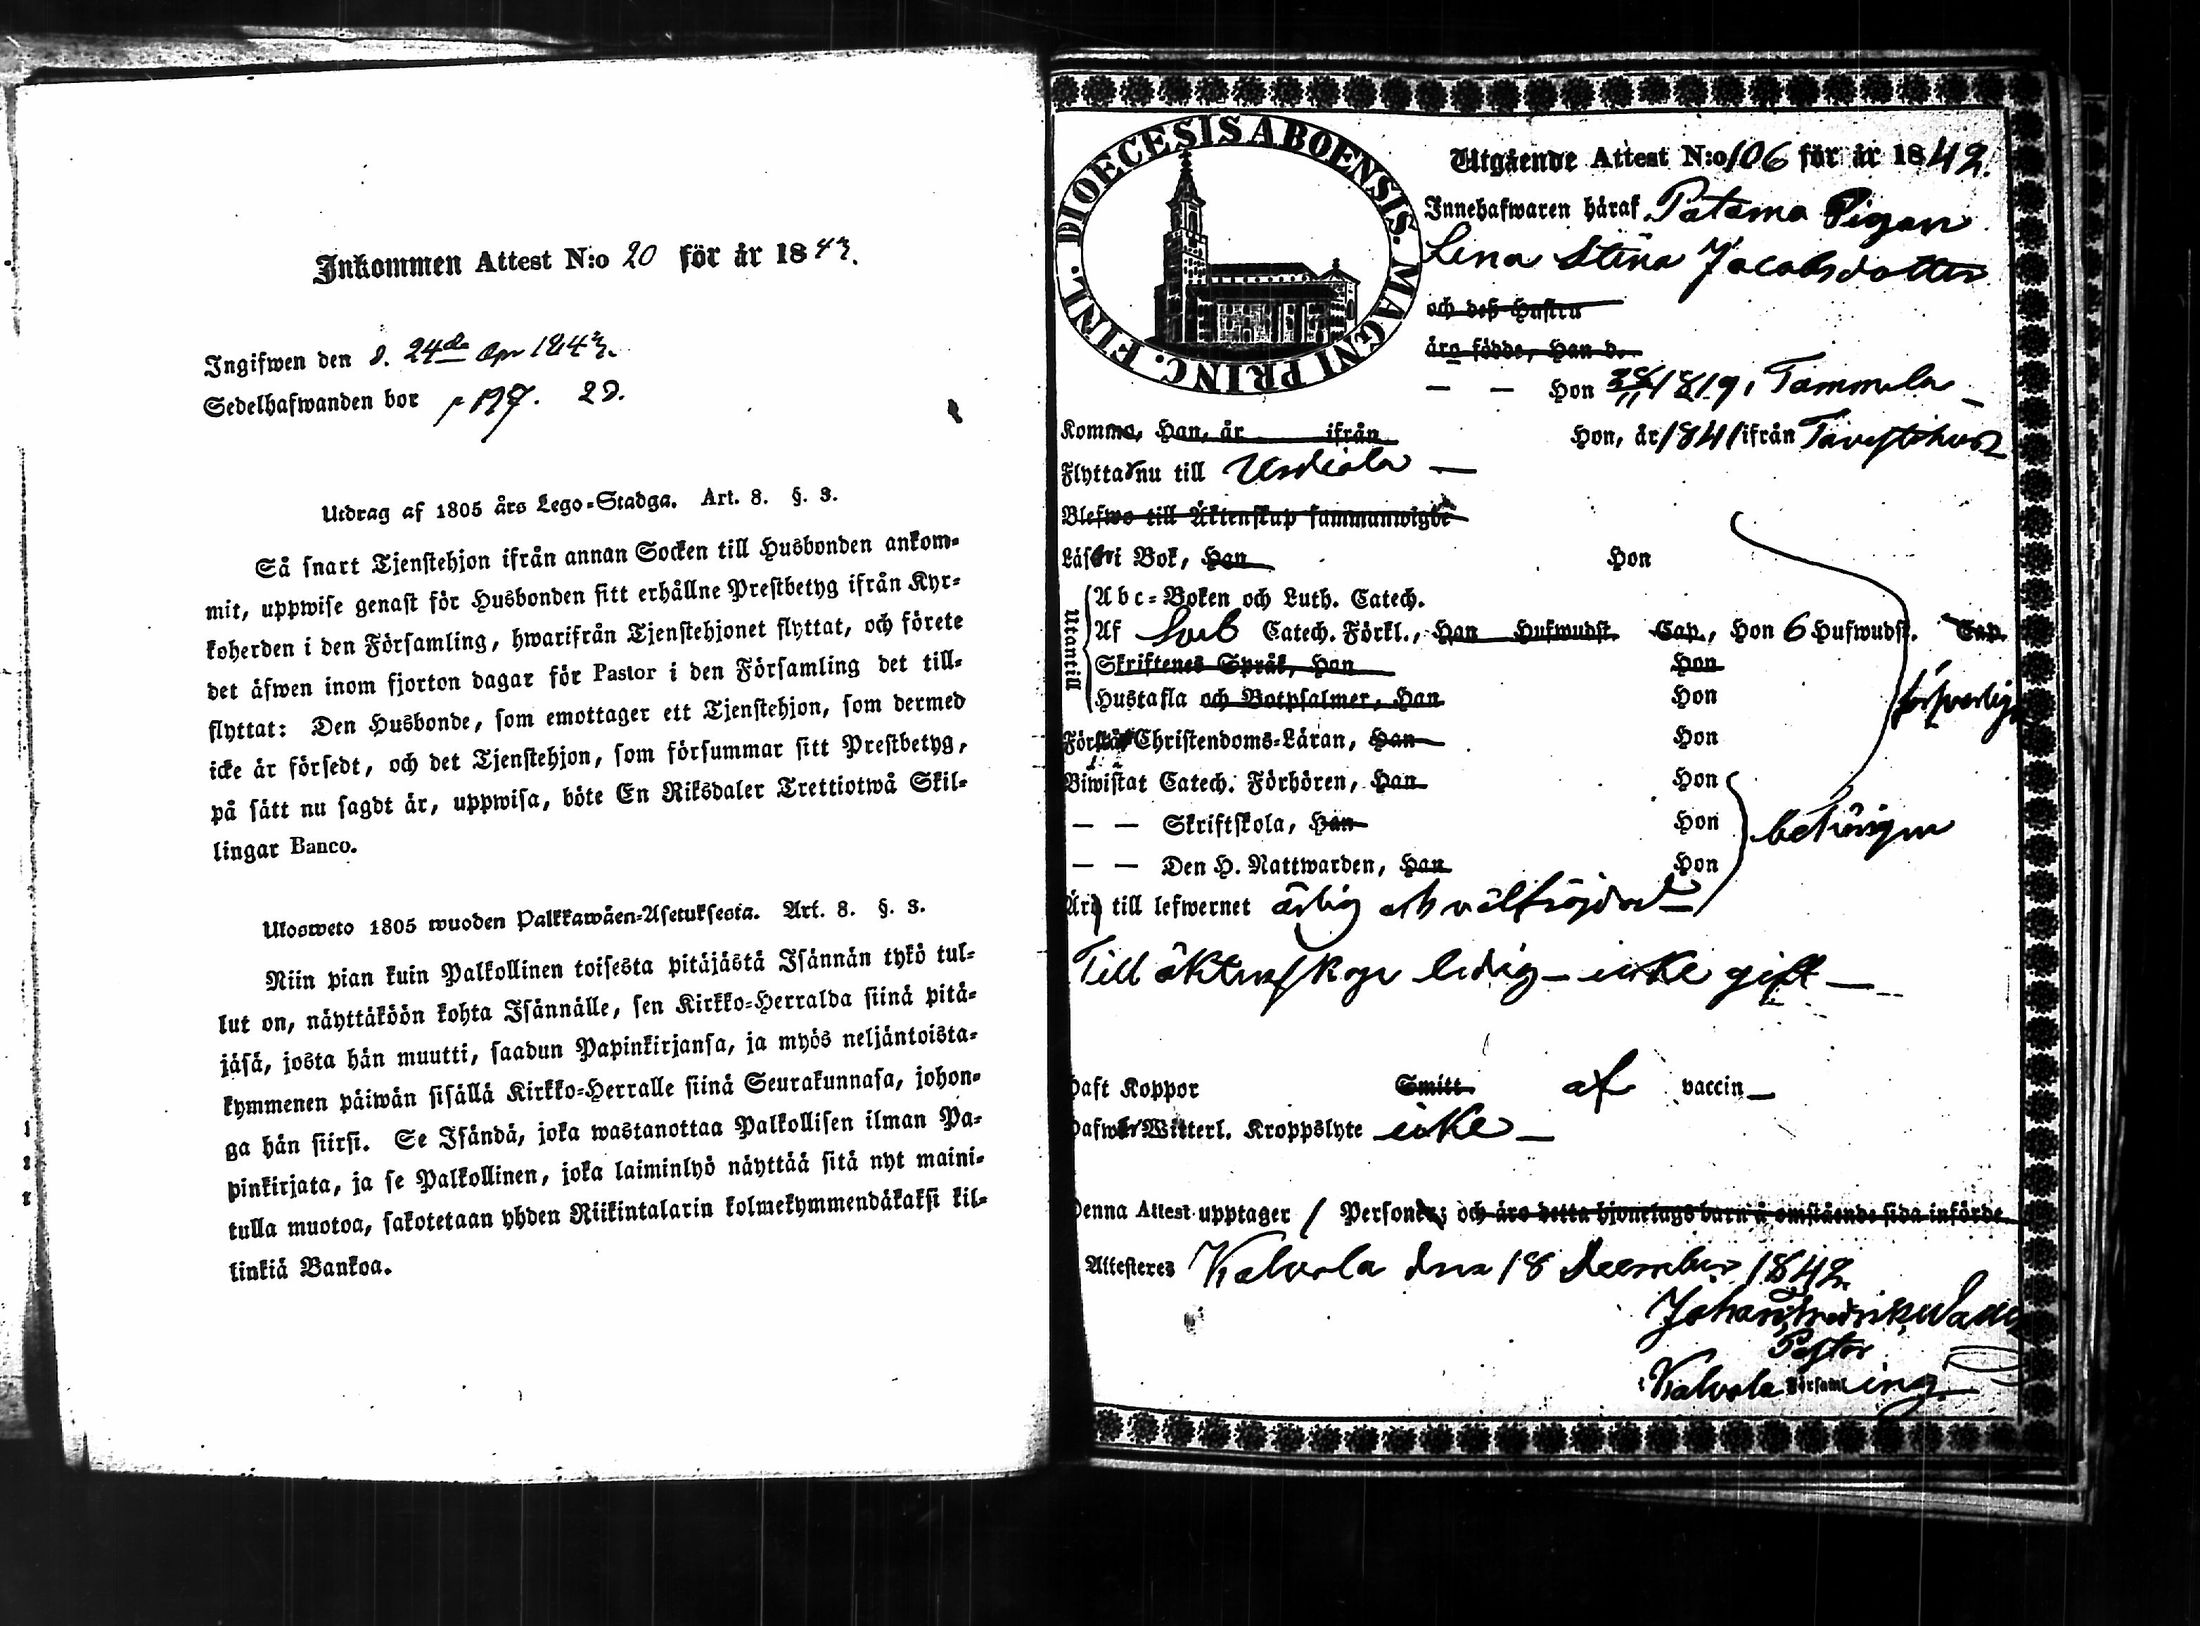 Inkommen Attest N:o 20 för år 1843.
Ingifwen den d. 24de Apr 1843.
Sedelhafwanden bor p 197. 28.
Utdrag af 1805 års Lego-Stadga. Art. 8. §. 3.
Så snart Tjenstehjon ifrån annan Socken till Husbonden ankom-
mit, uppwise genast för Husbonden sitt erhållne Prestbetyg ifrån Kyr-
koherden i den Församling, hwarifrån Tjenstehjonet flyttat, och förete
det äfwen inom fjorton dagar för Pastor i den Församling det till-
flyttat: Den Husbonde, som emottager ett Tjenstehjon, som dermed
icke är försedt, och det Tjenstehjon, som försummar sitt Prestbetyg,
på sätt nu sagdt är, uppwisa, böte En Riksdaler Trettiotwå Skil-
lingar Banco.
Ulosweto 1805 wuoden Palkkawäen-Asetuksesta. Art. 8. §. 3.
Niin pian kuin Palkollinen toisesta pitäjästä Isännän tykö tul-
lut on, näyttäköön kohta Isännälle, sen Kirkko-Herralda siinä pitä-
jäsä, josta hän muutti, saadun Papinkirjansa, ja myös neljäntoista-
kymmenen päiwän sisällä Kirkko-Herralle siinä Seurakunnasa, johon-
ga hän siirsi. Se Isändä, joka wastanottaa Palkollisen ilman Pa-
pinkirjata, ja se Palkollinen, joka laiminlyö näyttää sitä nyt maini-
tulla muotoa, sakotetaan yhden Riikintalarin kolmekymmendäkaksi kil-
linkiä Bankoa.
DIOECESIS ABOENSIS. MAGNI PRINC. FINL.
Utgående Attest N:o 106 för år 1842.
Innehafwaren häraf Pigan
Lena Stina Jacobsdotter
och deß Hustru
äro födde, Han d.
— — Hon 1819, Tammela
Komma, Han, år ifrån Hon, år 1841 ifrån Tavastehus
Flyttar nu till Urdiala —
Blefwo till Äktenskap sammanwigde
Läser i Bok, Han Hon
Utantill
Abc-Boken och Luth. Catech.
Af Sveb Catech. Förkl., Han Hufwudst. Cap., Hon 6 Hufwudst. Cap.
Skriftenes Språk, Han Hon
Hustafla och Botpsalmer, Han Hon försvarligt
Förstår Christendoms-Läran, Han Hon
Biwistat Catech. Förhören, Han Hon
— — Skriftskola, Han Hon behörigen
— — Den H. Nattwarden, Han Hon
Är till lefwernet ärlig och välfrejdad —
Till äktenskap ledig — icke gift —
Haft Koppor Smitt af vaccin —
Hafwer Witterl. Kroppslyte icke —
Denna Attest upptager 1 Personer; och äro detta hjonelags barn å omstående sida införde.
Attesteras Kalvola den 18 December 1842.
Johan Fredrik
Pastor
i Kalvola Församling